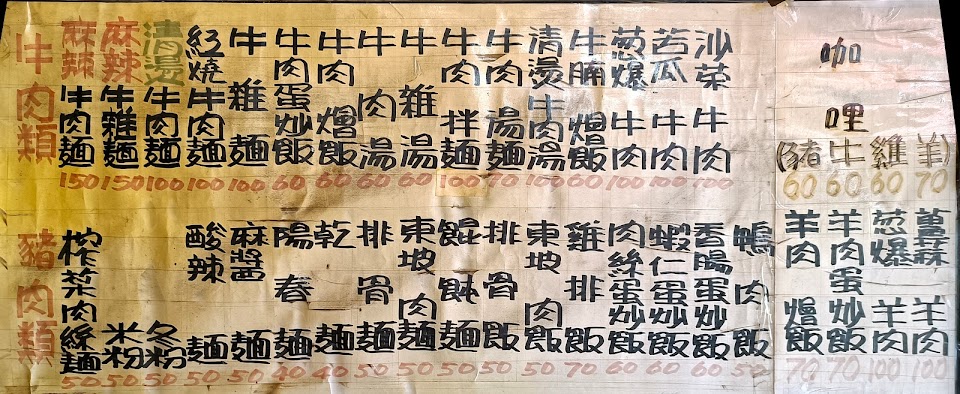 牛肉類
麻辣牛肉麵 150
麻辣牛雜麵 150
清燙牛肉麵 100
紅燒牛肉麵 100
牛雜麵 100
牛肉蛋炒飯 60
牛肉燴飯 60
牛肉湯 60
牛雜湯 60
牛肉拌麵 100
牛肉湯麵 70
清燙牛肉湯 100
牛腩燴飯 60
葱爆牛肉 100
苦瓜牛肉 100
沙茶牛肉 100
咖哩
(豬 牛 雞 羊)
60 60 60 70
豬肉類
榨菜肉絲麵 50
米粉 50
冬粉 50
酸辣麵 50
麻醬麵 50
陽春麵 40
乾麵 40
排骨麵 50
東坡肉麵 50
餛飩麵 50
排骨飯 50
東坡肉飯 50
雞排飯 70
肉絲蛋炒飯 60
蝦仁蛋炒飯 60
香腸蛋炒飯 60
鴨肉飯 50
羊肉燴飯 70
羊肉蛋炒飯 70
葱爆羊肉 100
薑蔴羊肉 100